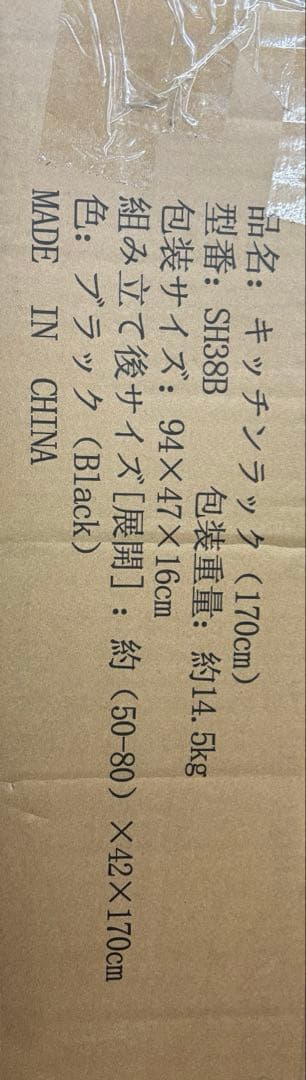 品名: キッチンラック (170cm)
型番: SH38B 包装重量: 約14.5kg
包装サイズ: 94×47×16cm
組み立て後サイズ[展開]: 約 (50-80) ×42×170cm
色: ブラック (Black)
MADE IN CHINA